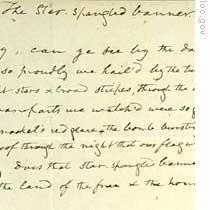 The Star-spangled banner.
y, can ye see by the da
so proudly we hail'd by the tw
t stars & broad stripes, through the
ramparts we watch'd were so g
rocket's red glare, the bomb burstin
oof through the night that our flag w
Does that star-spangled banne
the land of the free & the hom
loc.gov